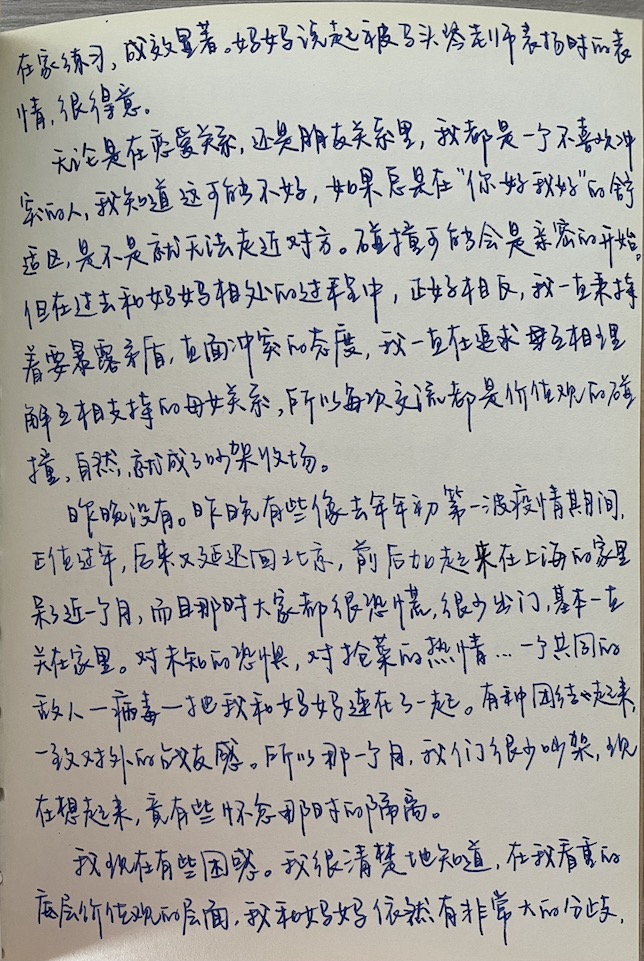 在家练习，成效显著。妈妈说起被马头琴老师表扬时的表
情，很得意。
无论是在恋爱关系，还是朋友关系里，我都是一个不喜欢冲
突的人，我知道这可能不好，如果总是在“你好我好”的舒
适区，是不是就无法走近对方。碰撞可能会是亲密的开始。
但在过去和妈妈相处的过程中，正好相反，我一直秉持
着要暴露矛盾，直面冲突的态度，我一直在追求互相理
解互相支持的母女关系，所以每次交流都是价值观的碰
撞，自然，就成了吵架收场。
昨晚没有。昨晚有些像去年年初第一波疫情期间，
正值过年，后来又延迟回北京，前后加起来在上海的家里
呆了近一个月，而且那时大家都很恐慌，很少出门，基本一直
关在家里。对未知的恐惧，对抢菜的热情…一个共同的
敌人—病毒—把我和妈妈连在了一起。有种团结起来，
一致对外的战友感。所以那一个月，我们很少吵架，现
在想起来，竟有些怀念那时的隔离。
我现在有些困惑。我很清楚地知道，在我看重的
底层价值观的层面，我和妈妈依然有非常大的分歧，